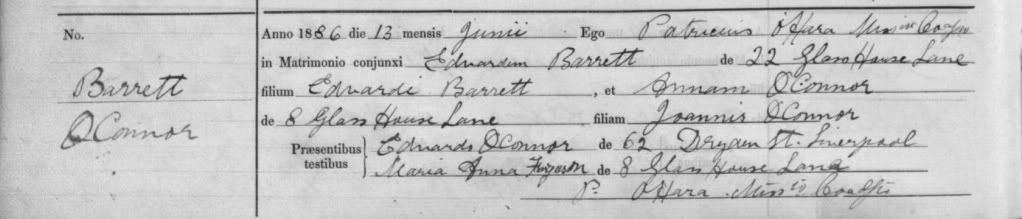 No.
Barrett
O'Connor
Anno 1886 die 13 mensis Junii Ego Patricius O'Hara Miss
in Matrimonio conjunxi Edvardum Barrett de 22 Glass House Lane
filium Edvardi Barrett, et Annam O'Connor
de 8 Glass House Lane filiam Joannis O'Connor
Præsentibus testibus
Edvardo O'Connor de 62 Dryden St. Liverpool
Maria Anna de 8 Glass House Lane
P. O'Hara Miss